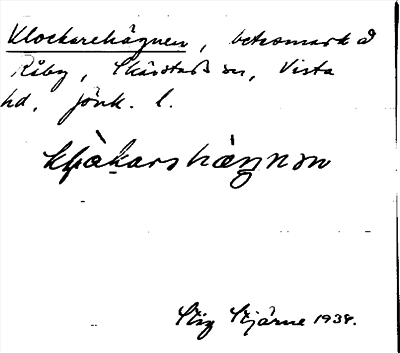 Klockarehägnen, betesmark å
Råby, Skärstads sn, Vista
hd, Jönk. l.
Stig Stjärne 1938.